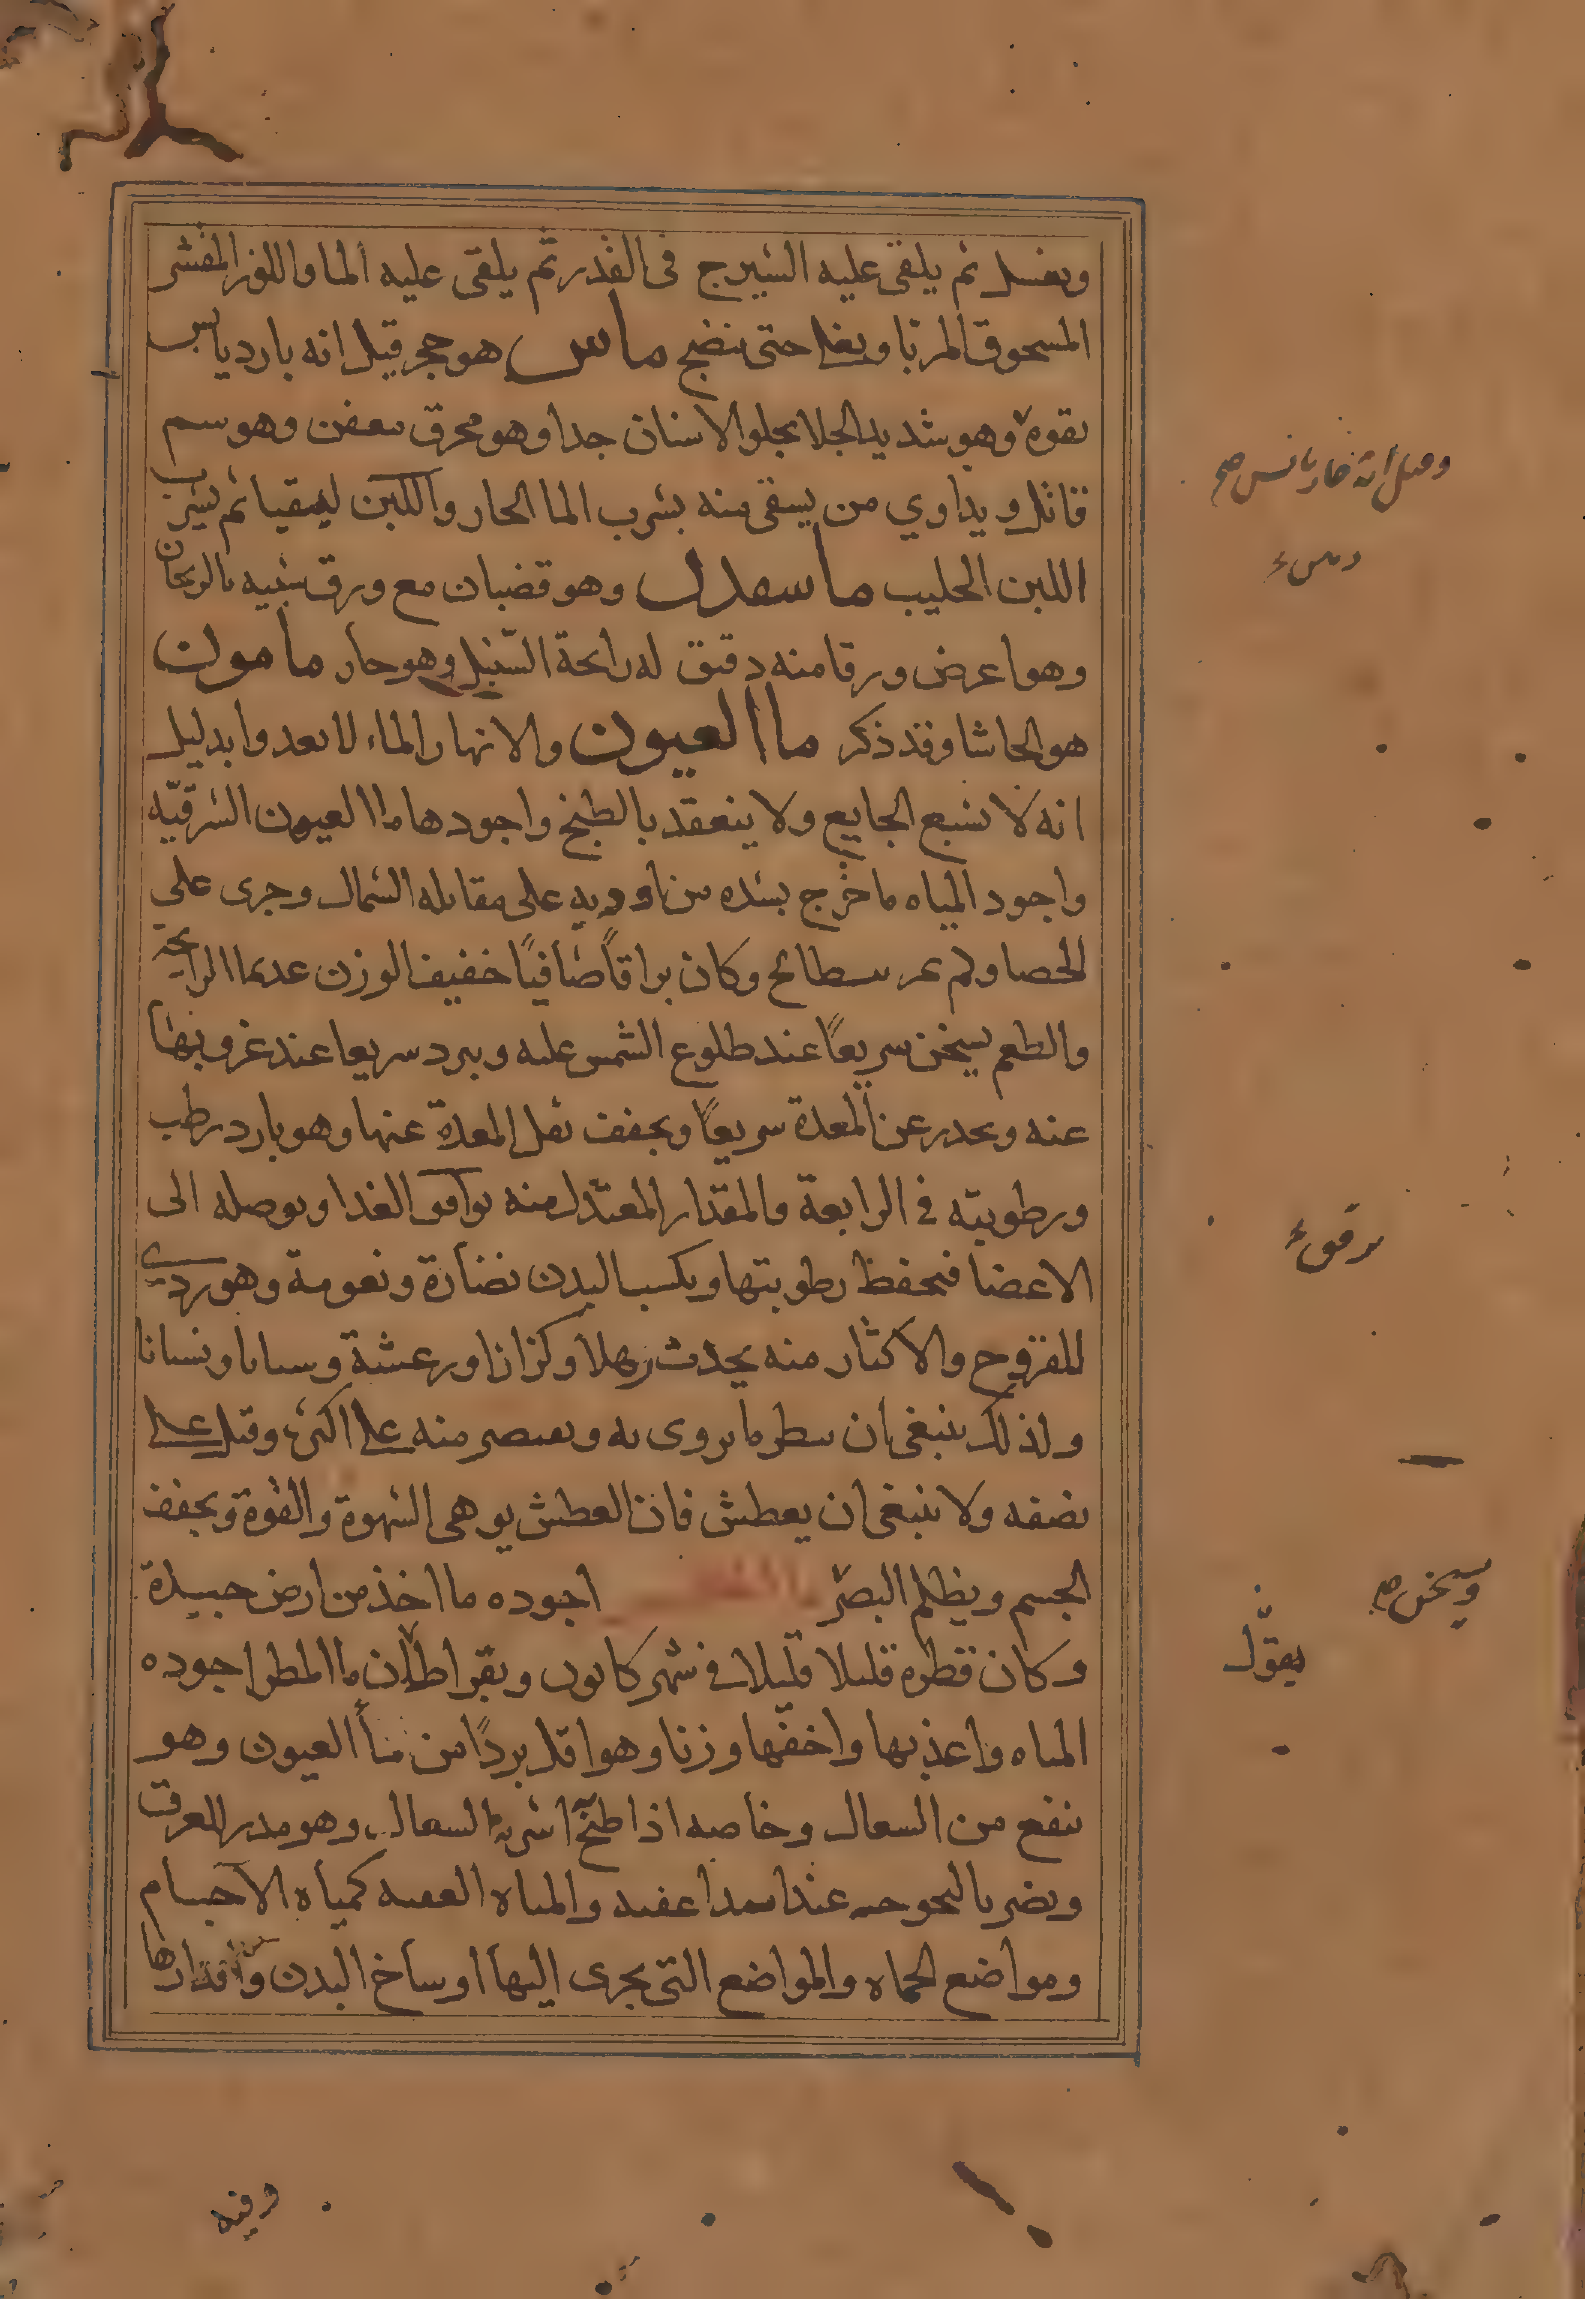 ويغسل ثم يلقى عليه الشيرج فى القدر ثم يلقى عليه الما واللوز المقشر
المسحوق المربا ويغلا حتى ينضج ماس هو حجر قيل انه بارد يابس
بقوة وهو شديد الجلا يجلو الاسنان جدا وهو محرق معفن وهو سم
قاتل ويداوي من يسقى منه بشرب الما الحار واللبن ليتقيا ثم يشرب
اللبن الحليب ماسفدل وهو قضبان مع ورق شبيه بالريحان
وهو اعرض ورقا منه دقيق له رايحة السنبل وهو حار مامون
هو الحاشا وقد ذكر ما العيون والانهار الماء لا يغدوا بدليل
انه لا يشبع الجايع ولا ينعقد بالطبخ واجودها ما العيون الشرقيه
واجود المياه ما خرج بشده من اوديه على مقابله الشمال وجرى على
الحصا ولم يمر بسطائح وكان براقا صافيا خفيف الوزن عديما الرايحة
والطعم يسخن سريعا عند طلوع الشمس عليه ويبرد سريعا عند غروبها
عنه ويحدر عن المعدة سريعا ويجفف ثقل المعدة عنها وهو بارد رطب
ورطوبته في الرابعة والمقدار المعتدل منه يوافق الغدا ويوصله الى
الاعضا فيحفظ رطوبتها ويكسب البدن نضارة ونعومة وهو ردي
للقروح والاكثار منه يحدث رهلا وكزازا ورعشة وسباتا ونسيانا
ولذلك ينبغي ان ينظر ما يروى به ويقتصر منه على اكثره وقيل على
نصفه ولا ينبغي ان يعطش فان العطش يوهى الشهوة والقوة ويجفف
الجسم ويظلم البصر ما المطر اجوده ما اخذ من ارض جيدة
وكان قطره قليلا قليلا في شهر كانون وبقراط ان ما المطر اجوده
المياه واعذبها واخفها وزنا وهو اقل بردا من ما العيون وهو
ينفع من السعال وخاصه اذا طبخ اشربه السعال وهو مدر للعرق
ويضر بالبحوحه عند ابتدا عفنه والمياه العفنه كمياه الاجسام
ومواضع الحماه والمواضع التي يجرى اليها اوساخ البدن واقدارها
وقيل انه حار يابس صح
يوافق
ويسخن صح
يقول
وفيه